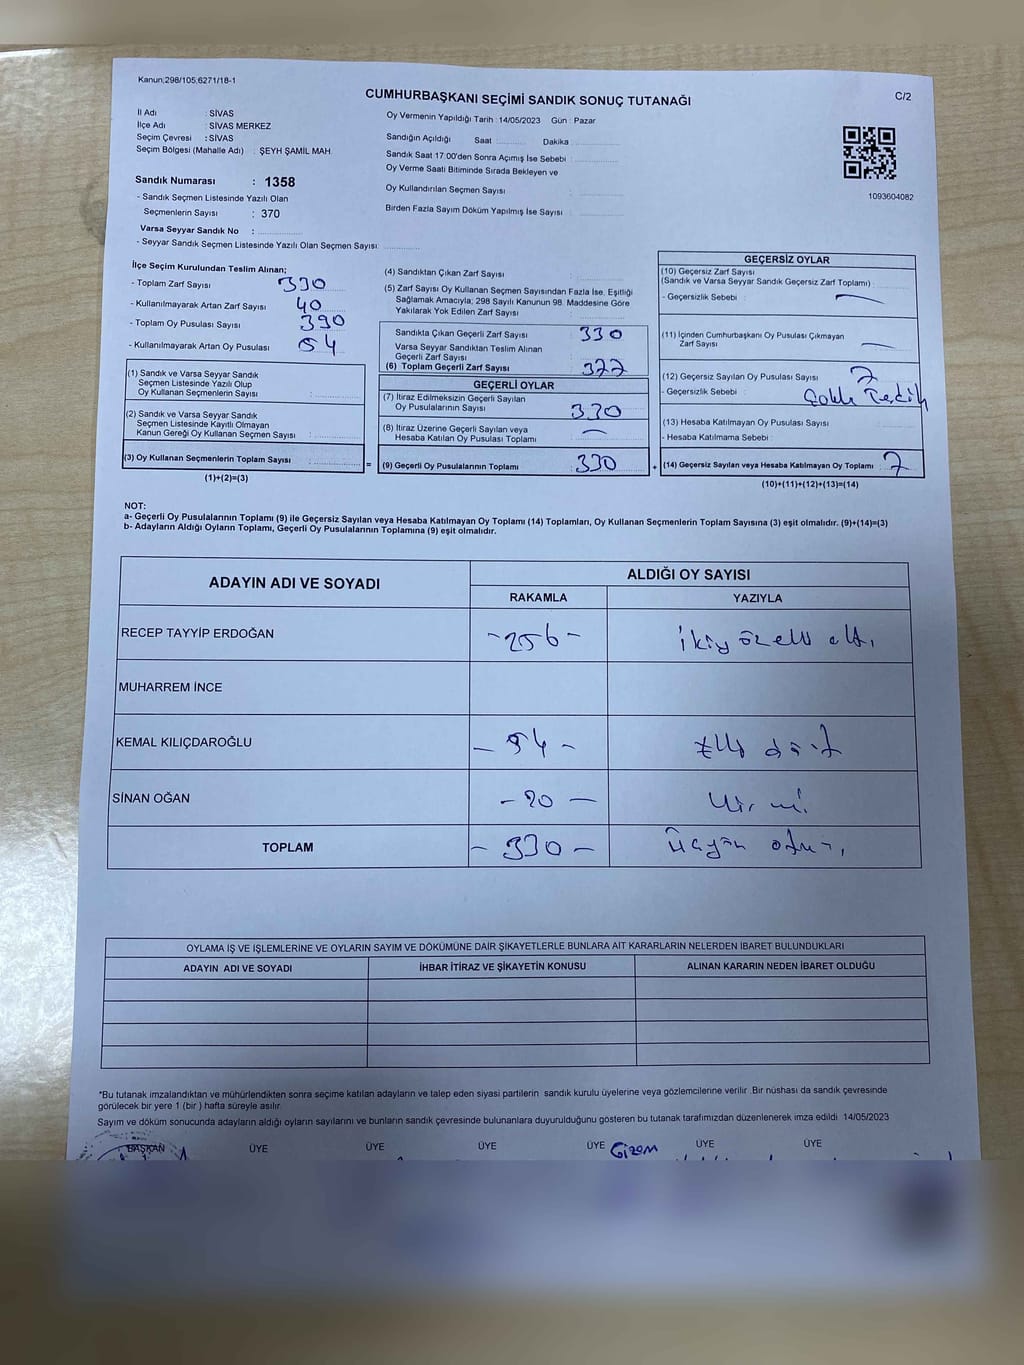 Kanun,298/105,6271/18-1
CUMHURBAŞKANI SEÇİMİ SANDIK SONUÇ TUTANAĞI
C/2
İl Adı : SİVAS
İlçe Adı : SİVAS MERKEZ
Seçim Çevresi : SİVAS
Seçim Bölgesi (Mahalle Adı) : ŞEYH ŞAMİL MAH.
Sandık Numarası : 1358
- Sandık Seçmen Listesinde Yazılı Olan
Seçmenlerin Sayısı : 370
Varsa Seyyar Sandık No :
- Seyyar Sandık Seçmen Listesinde Yazılı Olan Seçmen Sayısı:
Oy Vermenin Yapıldığı Tarih : 14/05/2023 Gün : Pazar
Sandığın Açıldığı Saat Dakika
Sandık Saat 17:00'den Sonra Açımış İse Sebebi :
Oy Verme Saati Bitiminde Sırada Bekleyen ve
Oy Kullandırılan Seçmen Sayısı :
Birden Fazla Sayım Döküm Yapılmış İse Sayısı :
1093604082
İlçe Seçim Kurulundan Teslim Alınan;
- Toplam Zarf Sayısı : 390
- Kullanılmayarak Artan Zarf Sayısı : 40
- Toplam Oy Pusulası Sayısı : 390
- Kullanılmayarak Artan Oy Pusulası : 54
(1) Sandık ve Varsa Seyyar Sandık
Seçmen Listesinde Yazılı Olup
Oy Kullanan Seçmenlerin Sayısı :
(2) Sandık ve Varsa Seyyar Sandık
Seçmen Listesinde Kayıtlı Olmayan
Kanun Gereği Oy Kullanan Seçmen Sayısı :
(3) Oy Kullanan Seçmenlerin Toplam Sayısı :
(1)+(2)=(3)
(4) Sandıktan Çıkan Zarf Sayısı :
(5) Zarf Sayısı Oy Kullanan Seçmen Sayısından Fazla İse, Eşitliği
Sağlamak Amacıyla; 298 Sayılı Kanunun 98. Maddesine Göre
Yakılarak Yok Edilen Zarf Sayısı :
Sandıkta Çıkan Geçerli Zarf Sayısı : 330
Varsa Seyyar Sandıktan Teslim Alınan
Geçerli Zarf Sayısı :
(6) Toplam Geçerli Zarf Sayısı : 377
GEÇERLİ OYLAR
(7) İtiraz Edilmeksizin Geçerli Sayılan
Oy Pusulalarının Sayısı : 330
(8) İtiraz Üzerine Geçerli Sayılan veya
Hesaba Katılan Oy Pusulası Toplamı : —
= (9) Geçerli Oy Pusulalarının Toplamı : 330
GEÇERSİZ OYLAR
(10) Geçersiz Zarf Sayısı
(Sandık ve Varsa Seyyar Sandık Geçersiz Zarf Toplamı) :
- Geçersizlik Sebebi : —
(11) İçinden Cumhurbaşkanı Oy Pusulası Çıkmayan
Zarf Sayısı : —
(12) Geçersiz Sayılan Oy Pusulası Sayısı : 7
- Geçersizlik Sebebi : Çoklu Tercih
(13) Hesaba Katılmayan Oy Pusulası Sayısı :
- Hesaba Katılmama Sebebi :
+ (14) Geçersiz Sayılan veya Hesaba Katılmayan Oy Toplamı : 7
(10)+(11)+(12)+(13)=(14)
NOT:
a- Geçerli Oy Pusulalarının Toplamı (9) ile Geçersiz Sayılan veya Hesaba Katılmayan Oy Toplamı (14) Toplamları, Oy Kullanan Seçmenlerin Toplam Sayısına (3) eşit olmalıdır. (9)+(14)=(3)
b- Adayların Aldığı Oyların Toplamı, Geçerli Oy Pusulalarının Toplamına (9) eşit olmalıdır.
ADAYIN ADI VE SOYADI ALDIĞI OY SAYISI
RAKAMLA YAZIYLA
RECEP TAYYİP ERDOĞAN -256- İkiyüzelli altı
MUHARREM İNCE
KEMAL KILIÇDAROĞLU -54- Elli dört
SİNAN OĞAN -20- Yirmi
TOPLAM -330- Üçyüz otuz
OYLAMA İŞ VE İŞLEMLERİNE VE OYLARIN SAYIM VE DÖKÜMÜNE DAİR ŞİKAYETLERLE BUNLARA AİT KARARLARIN NELERDEN İBARET BULUNDUKLARI
ADAYIN ADI VE SOYADI İHBAR İTİRAZ VE ŞİKAYETİN KONUSU ALINAN KARARIN NEDEN İBARET OLDUĞU
*Bu tutanak imzalandıktan ve mühürlendikten sonra seçime katılan adayların ve talep eden siyasi partilerin sandık kurulu üyelerine veya gözlemcilerine verilir .Bir nüshası da sandık çevresinde
görülecek bir yere 1 (bir ) hafta süreyle asılır.
Sayım ve döküm sonucunda adayların aldığı oyların sayılarını ve bunların sandık çevresinde bulunanlara duyurulduğunu gösteren bu tutanak tarafımızdan düzenlenerek imza edildi 14/05/2023
BAŞKAN ÜYE ÜYE ÜYE ÜYE Gizem ÜYE ÜYE